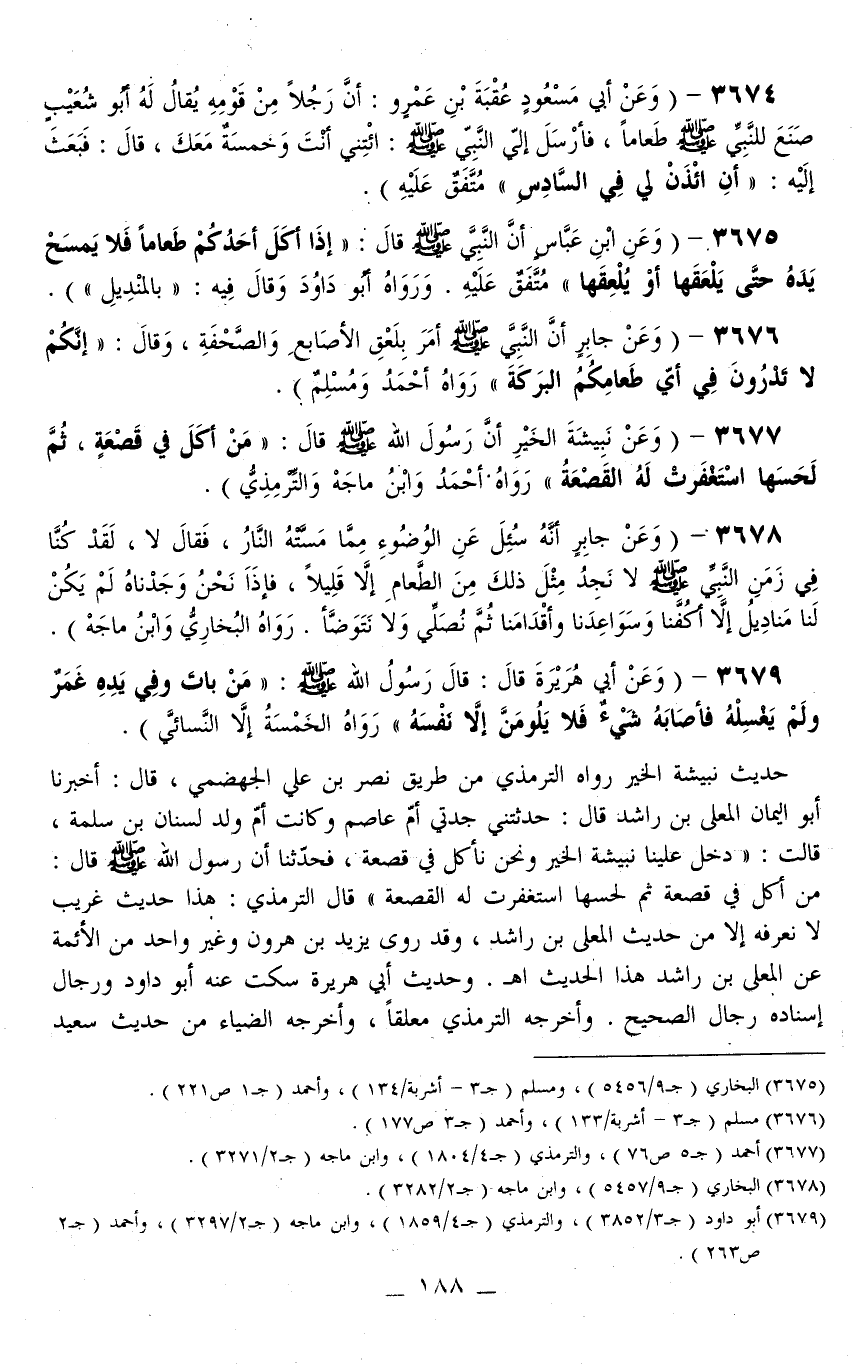 ٣٦٧٤ - ( وَعَنْ أبي مَسْعُودٍ عُقْبَةَ بْنِ عَمْرٍو : أنَّ رَجُلاً مِنْ قَوْمِهِ يُقالُ لَهُ أبُو شُعَيْبٍ
صَنَعَ للنَّبِيِّ ﷺ طَعاماً ، فأرْسَلَ إليّ النَّبِيّ ﷺ : ائْتِني أنْتَ وَخَمسةٌ مَعَكَ ، قالَ : فَبَعَثَ
إلَيْه : « أنِ ائْذَنْ لي فِي السَّادِسِ » مُتَّفَقٌ عَلَيْهِ ) .
٣٦٧٥ - ( وَعَنِ ابْنِ عَبَّاسٍ أنَّ النَّبِيَّ ﷺ قالَ : « إذَا أكَلَ أحَدُكُمْ طَعاماً فَلا يَمسَحْ
يَدَهُ حتَّى يَلْعَقَها أوْ يُلْعِقَها » مُتَّفَقٌ عَلَيْهِ . وَرَوَاهُ أبُو دَاوُدَ وَقالَ فِيه : « بالمنْدِيلِ » ) .
٣٦٧٦ - ( وَعَنْ جابِرٍ أنَّ النَّبِيَّ ﷺ أمَرَ بِلَعْقِ الأصَابعِ وَالصَّحْفَةِ ، وَقالَ : « إنَّكُمْ
لا تَدْرُونَ فِي أيّ طَعامِكُمُ البَرَكَةَ » رَوَاهُ أحْمَدُ وَمُسْلِمٌ ) .
٣٦٧٧ - ( وَعَنْ نَبِيشَةَ الخَيْرِ أنَّ رَسُولَ الله ﷺ قالَ : « مَنْ أكَلَ في قَصْعَةٍ ، ثُمَّ
لَحَسَها اسْتَغْفَرتْ لَهُ القَصْعَةُ » رَوَاهُ أحْمَدُ وَابْنُ ماجَهْ وَالتِّرْمِذِيُّ ) .
٣٦٧٨ - ( وَعَنْ جابِرٍ أنَّهُ سُئِلَ عَنِ الوُضُوءِ مِمَّا مَسَّتْهُ النَّارُ ، فَقالَ لا ، لَقَدْ كُنَّا
فِي زَمَنِ النَّبِيِّ ﷺ لا نَجِدُ مِثْلَ ذلكَ مِنَ الطَّعامِ إلَّا قَلِيلاً ، فإذَا نَحْنُ وَجَدْناهُ لَمْ يَكُنْ
لَنا مَنادِيلُ إلَّا أكُفَّنا وَسَوَاعِدَنا وأقْدَامَنا ثُمَّ نُصَلِّي وَلا نَتَوَضَّأ . رَوَاهُ البُخاريُّ وَابْنُ ماجَهْ ) .
٣٦٧٩ - ( وَعَنْ أبي هُرَيْرَةَ قالَ : قالَ رَسُولُ الله ﷺ : « مَنْ باتَ وفِي يَدِهِ غَمَرٌ
ولَمْ يَغْسِلْهُ فأصَابَهُ شَيْءٌ فَلا يَلُومَنَّ إلَّا نَفْسَهُ » رَوَاهُ الخَمْسَةُ إلَّا النَّسائيَّ ) .
حديث نبيشة الخير رواه الترمذي من طريق نصر بن علي الجهضمي ، قال : أخبرنا
أبو اليمان المعلى بن راشد قال : حدثتني جدتي أمّ عاصم وكانت أمّ ولد لسنان بن سلمة ،
قالت : « دخل علينا نبيشة الخير ونحن نأكل في قصعة ، فحدّثنا أن رسول الله ﷺ قال :
من أكل في قصعة ثم لحسها استغفرت له القصعة » قال الترمذي : هذا حديث غريب
لا نعرفه إلا من حديث المعلى بن راشد ، وقد روى يزيد بن هرون وغير واحد من الأئمة
عن المعلى بن راشد هذا الحديث اهـ . وحديث أبي هريرة سكت عنه أبو داود ورجال
إسناده رجال الصحيح . وأخرجه الترمذي معلقاً ، وأخرجه الضياء من حديث سعيد
(٣٦٧٥) البخاري ( جـ٥٤٥٦/٩ ) ، ومسلم ( جـ٣ - أشربة/١٣٤ ) ، وأحمد ( جـ١ ص٢٢١ ) .
(٣٦٧٦) مسلم ( جـ٣ - أشربة/١٣٣ ) ، وأحمد ( جـ٣ ص١٧٧ ) .
(٣٦٧٧) أحمد ( جـ٥ ص٧٦ ) ، والترمذي ( جـ١٨٠٤/٤ ) ، وابن ماجه ( جـ٣٢٧١/٢ ) .
(٣٦٧٨) البخاري ( جـ٥٤٥٧/٩ ) ، وابن ماجه ( جـ٣٢٨٢/٢ ) .
(٣٦٧٩) أبو داود ( جـ٣٨٥٢/٣ ) ، والترمذي ( جـ١٨٥٩/٤ ) ، وابن ماجه ( جـ٣٢٩٧/٢ ) ، وأحمد ( جـ٢
ص٢٦٣ ) .
_ ١٨٨ _